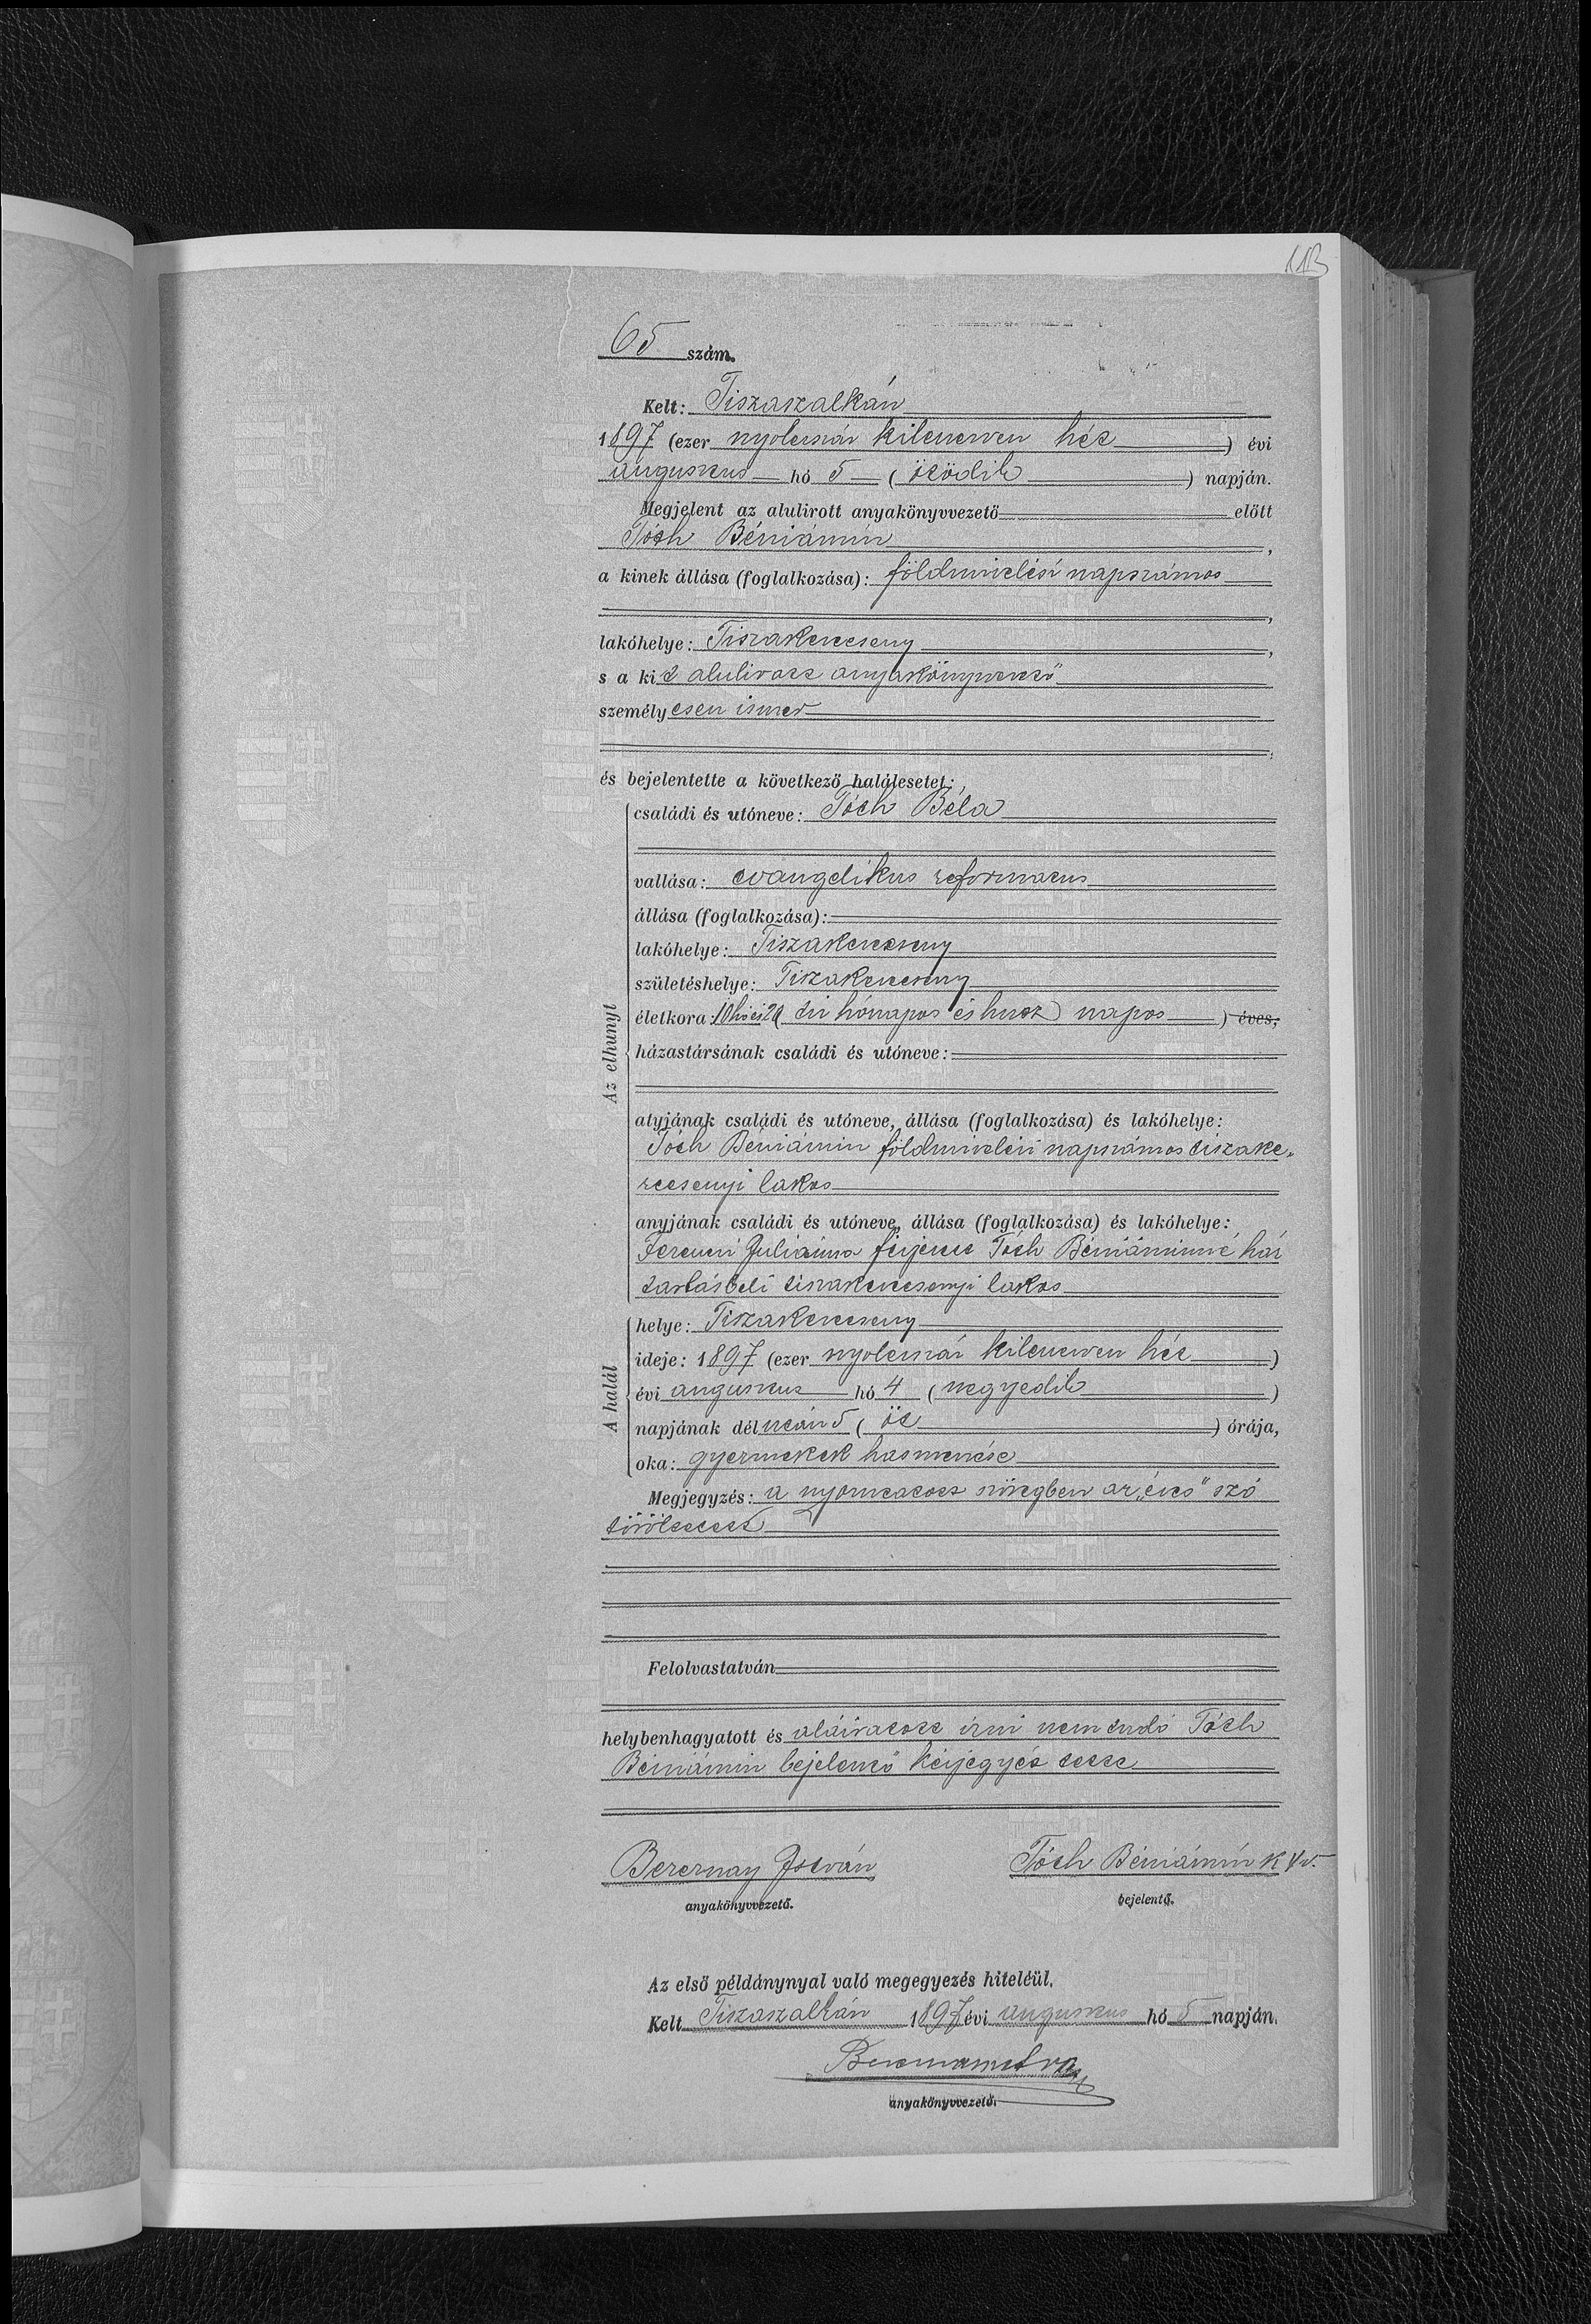 113
65 szám.
Kelt: Tiszaszalkán
1897 (ezer nyolcszáz kilencven hét ) évi
augusztus hó 5 ( ötödik ) napján.
Megjelent az alulirott anyakönyvvezető előtt
Tóth Béniámin ,
a kinek állása (foglalkozása): földmivelési napszámos
,
lakóhelye: Tiszakerecseny ,
s a kit alulirott anyakönyvvezető
személyesen ismer
és bejelentette a következő halálesetet:
Az elhunyt
családi és utóneve: Tóth Béla
vallása: evangélikus reformatus
állása (foglalkozása):
lakóhelye: Tiszakerecseny
születéshelye: Tiszakerecseny
életkora: 10 hó és 20 ( tíz hónapos és husz napos ) éves,
házastársának családi és utóneve:
atyjának családi és utóneve, állása (foglalkozása) és lakóhelye:
Tóth Béniámin földmivelési napszámos tiszake-
recsenyi lakos
anyjának családi és utóneve, állása (foglalkozása) és lakóhelye:
Ferenczi Juliánna férjezett Tóth Béniáminné ház
tartásbeli tiszakerecsenyi lakos
A halál
helye: Tiszakerecseny
ideje: 1897 (ezer nyolcszáz kilencven hét )
évi augusztus hó 4 ( negyedik )
napjának délután 5 ( öt ) órája,
oka: gyermekek hasmenése
Megjegyzés: a nyomtatott szövegben az „éves" szó
töröltetett
Felolvastatván
helybenhagyatott és aláiratott irni nem tudó Tóth
Béniámin bejelentő kézjegyét tette
Berernay István
anyakönyvvezető.
Tóth Béniámin K X v.
bejelentő.
Az első példánynyal való megegyezés hiteléül.
Kelt Tiszaszalkán 1897 évi augusztus hó 5 napján.
anyakönyvvezető.